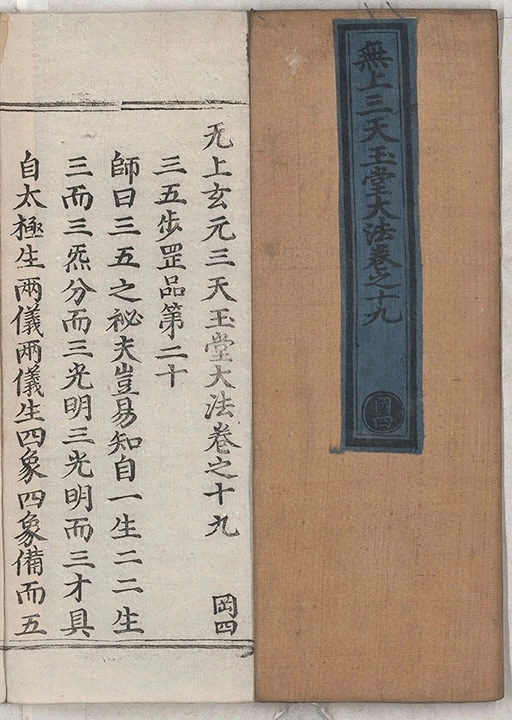 無上三天玉堂大法卷之十九
岡四
无上玄元三天玉堂大法卷之十九 岡四
三五步罡品第二十
師曰三五之祕夫豈易知自一生二二生
三而三炁分而三光明三光明而三才具
自太極生兩儀兩儀生四象四象備而五